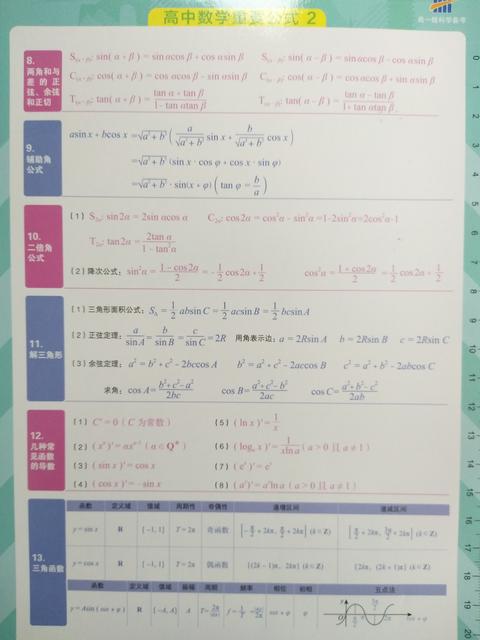 高中数学重要公式 2
高一级科学备考
8.
两角和与
差的正
弦、余弦
和正切
S(α+β): sin(α+β)=sinαcosβ+cosαsinβ
S(α-β): sin(α-β)=sinαcosβ-cosαsinβ
C(α+β): cos(α+β)=cosαcosβ-sinαsinβ
C(α-β): cos(α-β)=cosαcosβ+sinαsinβ
T(α+β): tan(α+β)=(tanα+tanβ)/(1-tanαtanβ)
T(α-β): tan(α-β)=(tanα-tanβ)/(1+tanαtanβ)
9.
辅助角
公式
asinx+bcosx=√(a²+b²)(a/√(a²+b²) sinx+b/√(a²+b²) cosx)
=√(a²+b²)(sinx·cosφ+cosx·sinφ)
=√(a²+b²)·sin(x+φ)(tanφ=b/a)
10.
二倍角
公式
(1) S2α: sin2α=2sinαcosα
C2α: cos2α=cos²α-sin²α=1-2sin²α=2cos²α-1
T2α: tan2α=2tanα/(1-tan²α)
(2) 降次公式: sin²α=(1-cos2α)/2=-1/2 cos2α+1/2
cos²α=(1+cos2α)/2=1/2 cos2α+1/2
11.
解三角形
(1) 三角形面积公式: S△=1/2 absinC=1/2 acsinB=1/2 bcsinA
(2) 正弦定理: a/sinA=b/sinB=c/sinC=2R 用角表示边: a=2RsinA b=2RsinB c=2RsinC
(3) 余弦定理: a²=b²+c²-2bccosA b²=a²+c²-2accosB c²=a²+b²-2abcosC
求角: cosA=(b²+c²-a²)/2bc cosB=(a²+c²-b²)/2ac cosC=(a²+b²-c²)/2ab
12.
几种常
见函数
的导数
(1) C'=0 (C为常数)
(5) (lnx)'=1/x
(2) (xⁿ)'=αxⁿ⁻¹ (α∈Q*)
(6) (logₐx)'=1/(xlna) (a>0且a≠1)
(3) (sinx)'=cosx
(7) (eˣ)'=eˣ
(4) (cosx)'=-sinx
(8) (aˣ)'=aˣlna (a>0且a≠1)
13.
三角函数
函数 定义域 值域 周期性 奇偶性 递增区间 递减区间
y=sinx R [-1,1] T=2π 奇函数 [-π/2+2kπ, π/2+2kπ] (k∈Z) [π/2+2kπ, 3π/2+2kπ] (k∈Z)
y=cosx R [-1,1] T=2π 偶函数 [(2k-1)π, 2kπ] (k∈Z) [2kπ, (2k+1)π] (k∈Z)
函数 定义域 值域 振幅 周期 频率 相位 初相 五点法
y=Asin(ωx+φ) R [-A,A] A T=2π/|ω| f=1/T=|ω|/2π ωx+φ φ
0
1
2
3
4
5
6
7
8
9
10
11
12
13
14
15
16
17
18
19
20